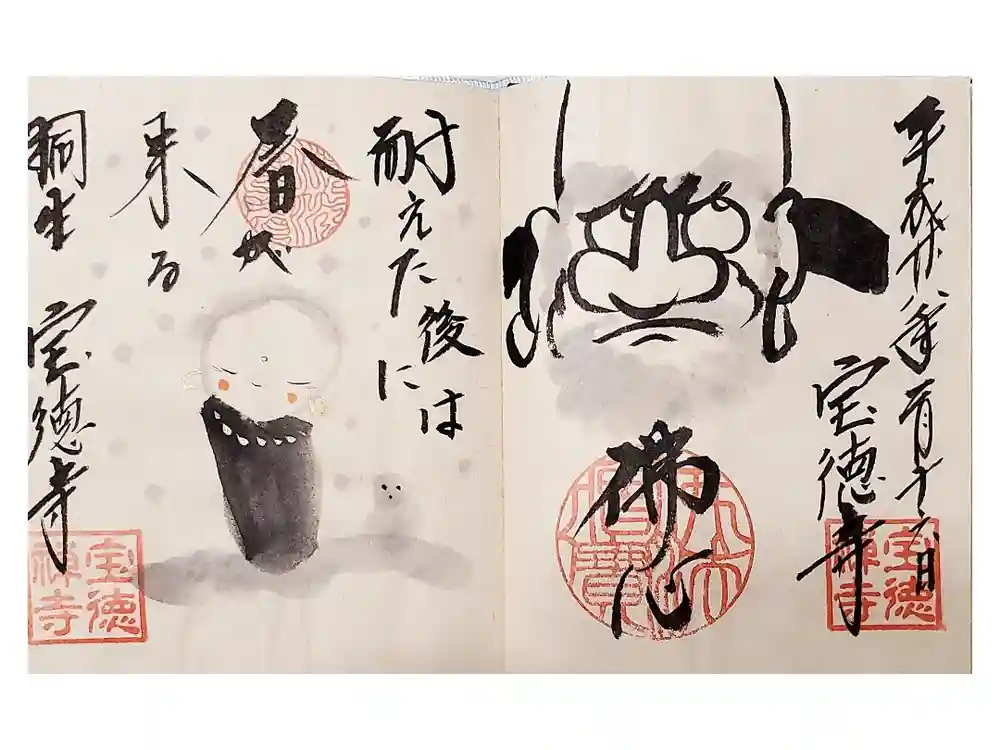 平成廿八年一月十六日
宝徳寺
佛心
佛法僧寳
宝徳禅寺
耐えた後には
春が
来る
桐生 宝徳寺
宝徳禅寺